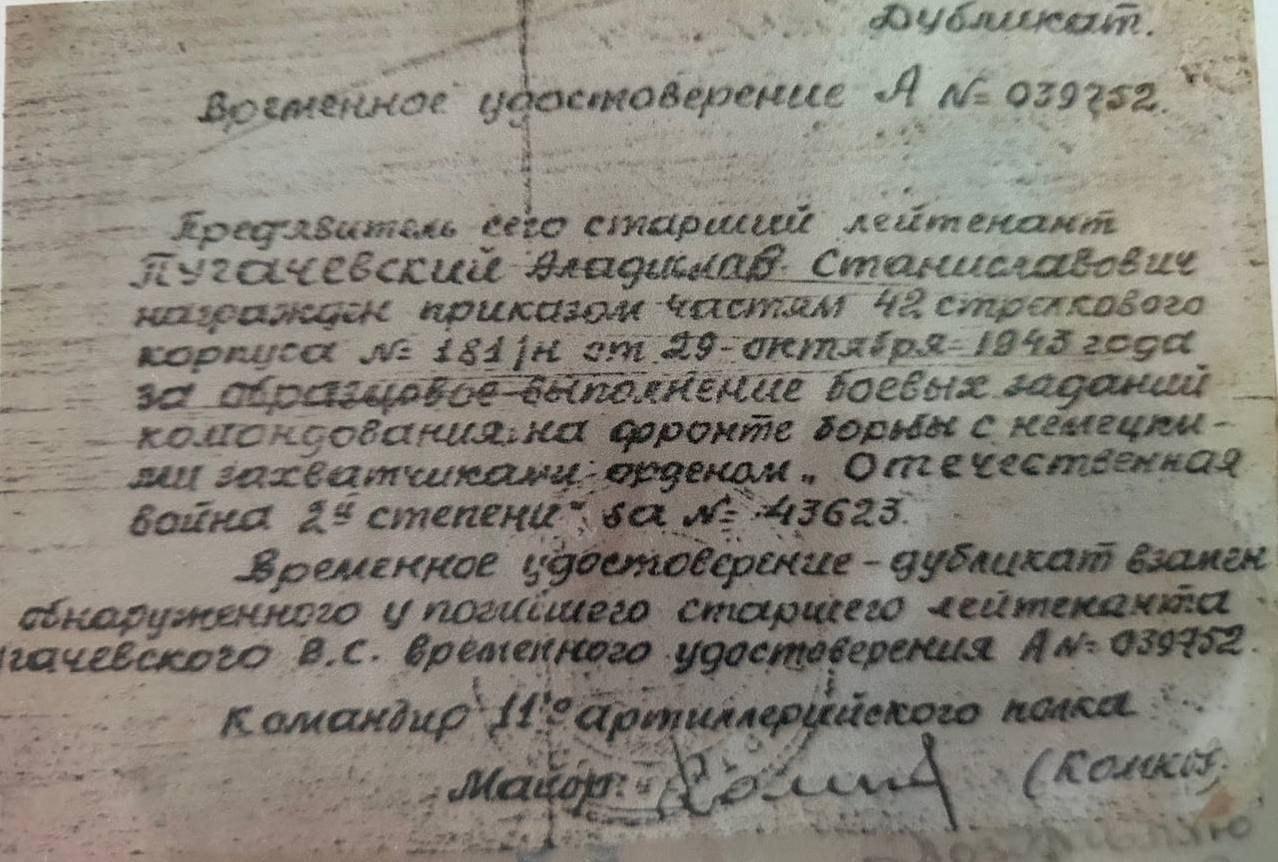 Дубликат.
Временное удостоверение А № 039752.
Предявитель сего старший лейтенант
Пугачевский Владислав Станиславович
награжден приказом частям 42 стрелкового
корпуса № 181/н от 29 октября 1943 года
за образцовое выполнение боевых заданий
командования на фронте борьбы с немецки-
ми захватчиками орденом „Отечественная
война 2й степени" за № 43623.
Временное удостоверение - дубликат взамен
обнаруженного у погибшего старшего лейтенанта
гачевского В.С. временного удостоверения А № 039752.
Командир 11го артиллерийского полка
Майор: (Комков